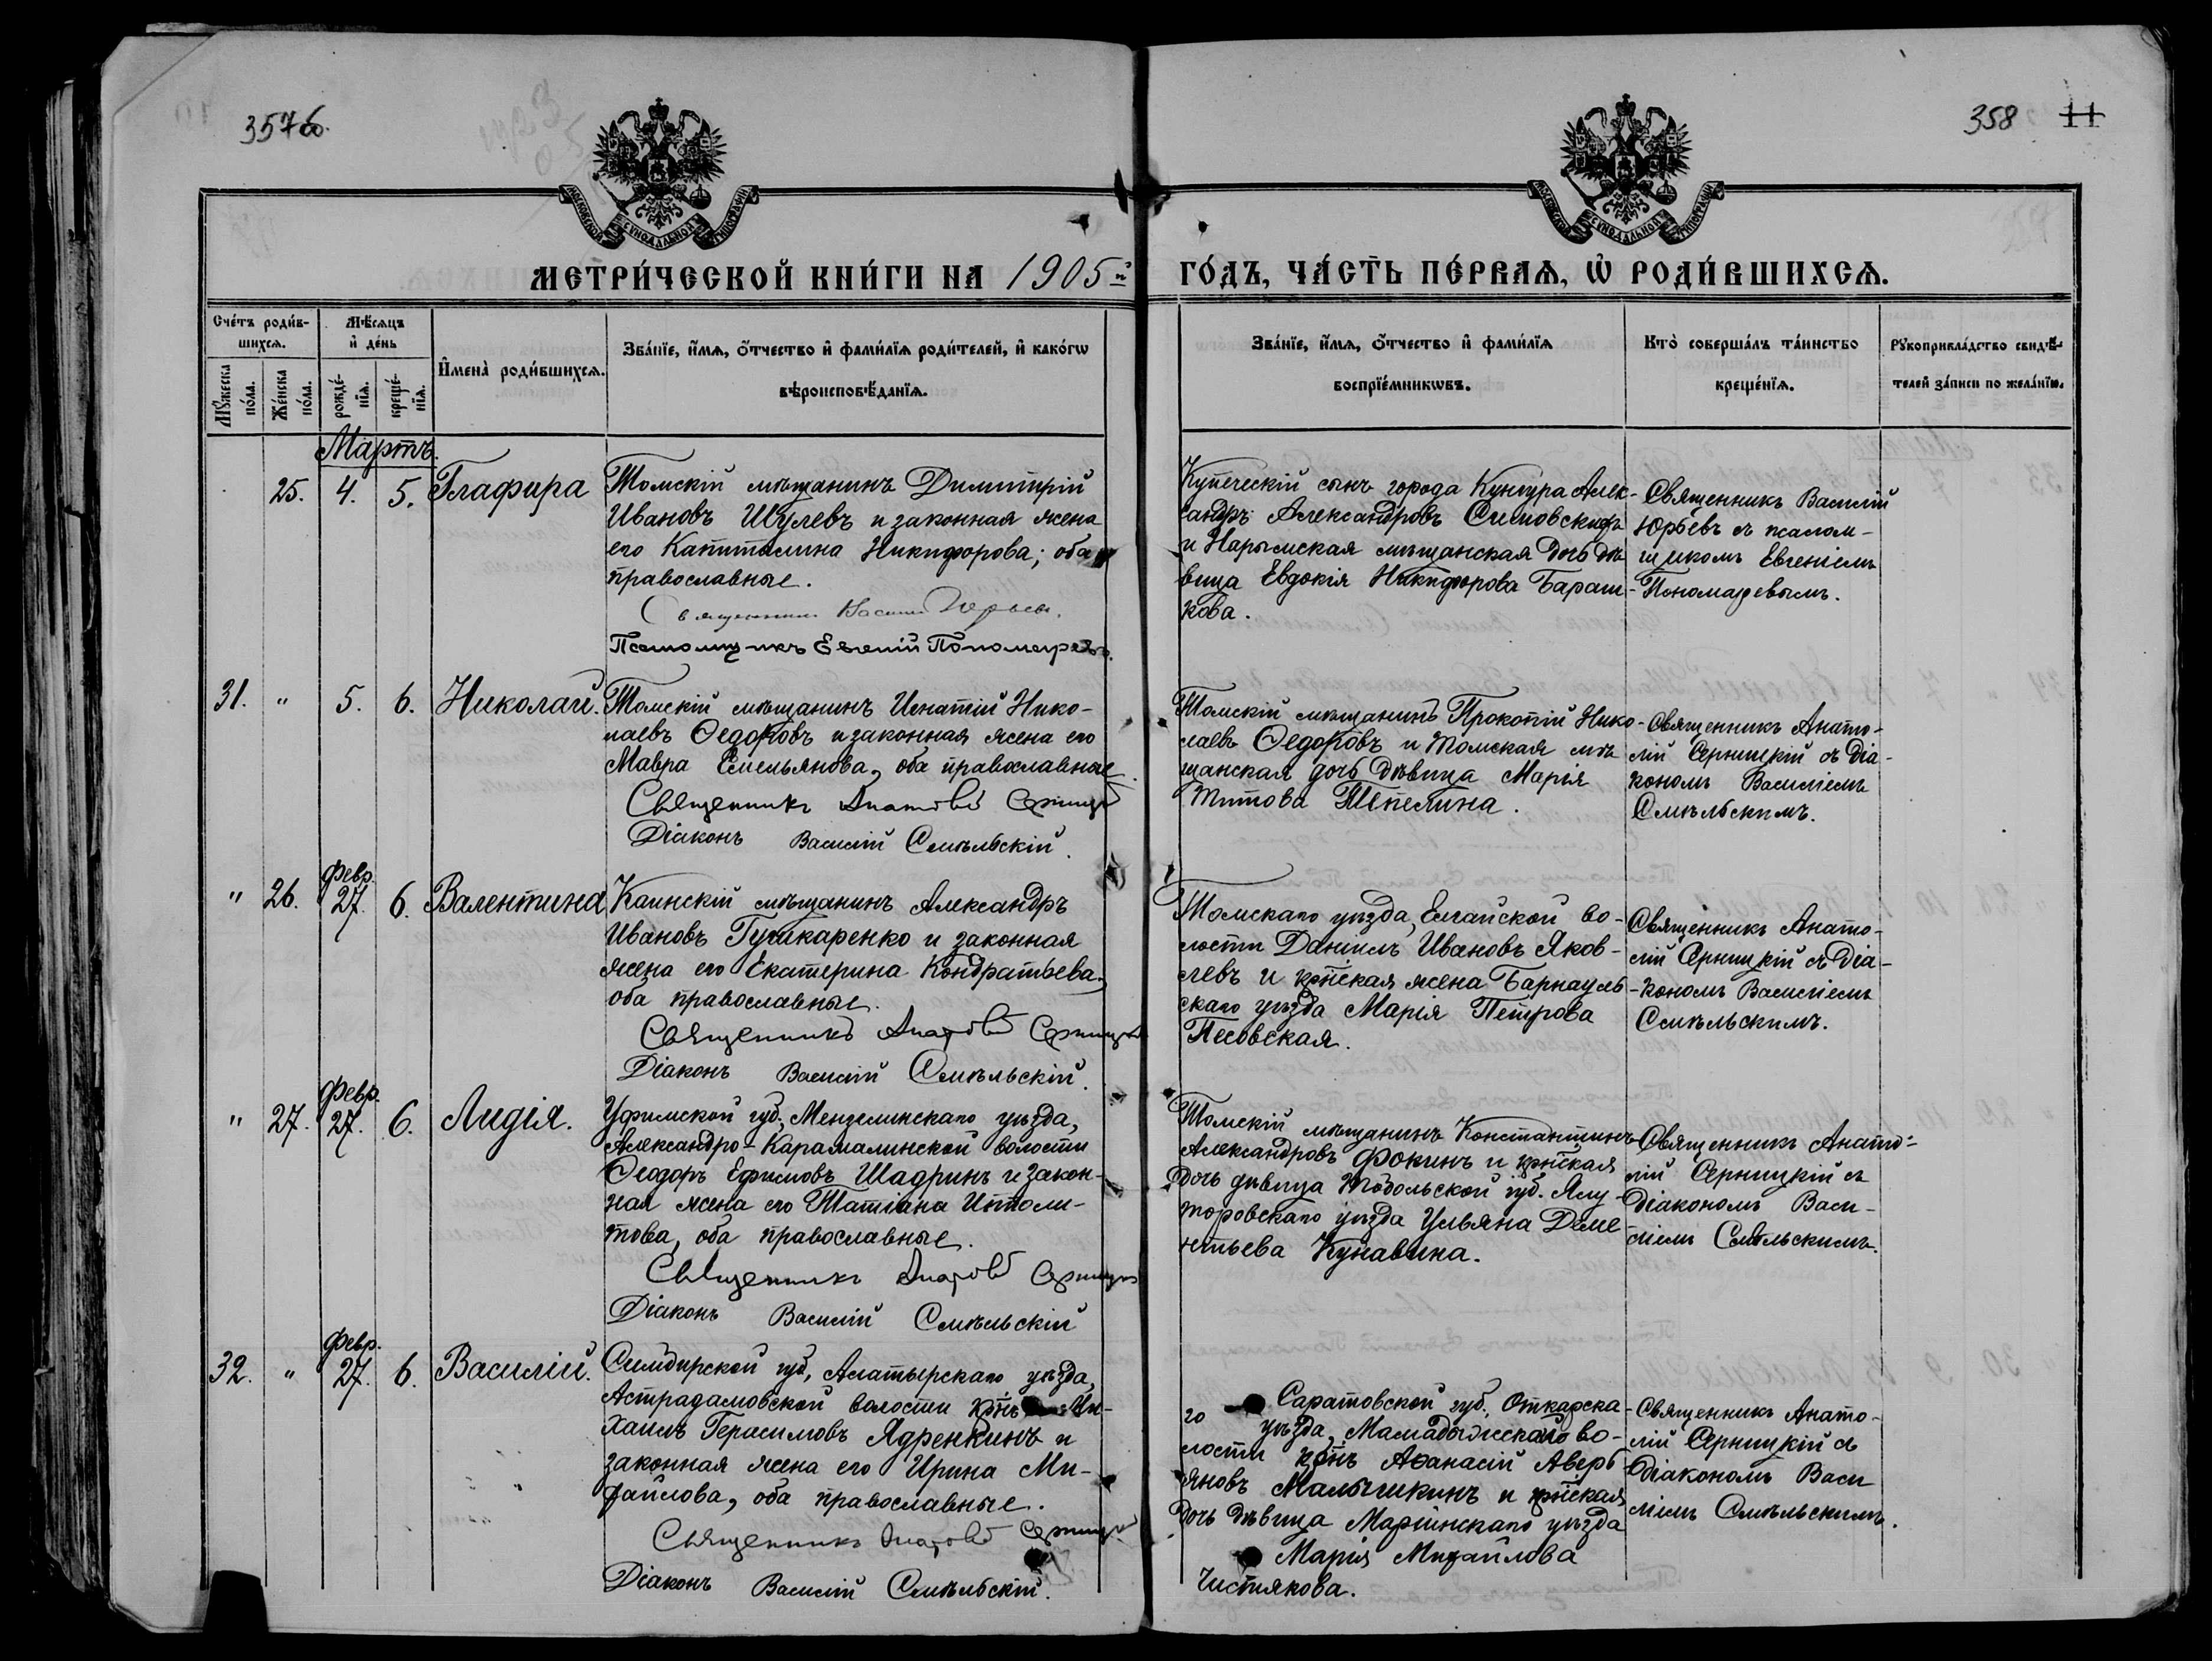 357об.
358 11
МОСКОВСКОЙ СѴНОДАЛЬНОЙ ТИПОГРАФІИ
МОСКОВСКОЙ СѴНОДАЛЬНОЙ ТИПОГРАФІИ
МЕТРИ́ЧЕСКОЙ КНИ́ГИ НА 1905й
ГО́ДЪ, ЧА́СТЬ ПЕ́РВАѦ, Ѡ҆ РОДИ́ВШИХСѦ.
Сче́тъ роди́в-
шихсѧ.
Мꙋ́жеска по́ла.
Же́нска по́ла.
Мѣ́сѧцъ
и҆ де́нь
рожде́-
нїѧ.
креще́-
нїѧ.
И҆мена̀ роди́вшихсѧ.
Зва́нїе, и҆́мѧ, ѻ҆́тчество и҆ фами́лїѧ роди́телей, и҆ како́гѡ
вѣроисповѣ́данїѧ.
Зва́нїе, и҆́мѧ, ѻ҆́тчество и҆ фами́лїѧ
воспрїе́мникѡвъ.
Кто̀ соверша́лъ та́инство
креще́нїѧ.
Рꙋкоприкла́дство свидѣ́-
телей за́писи по жела́нїю.
Мартъ.
25. 4. 5. Глафира
Томскій мѣщанинъ Димитрій
Ивановъ Шулевъ и законная жена
его Капитолина Никифорова; оба
православные.
Священникъ Василій Юрьевъ.
Псаломщикъ Евгеній Пономаревъ.
Купеческій сынъ города Кунгура Алек-
сандръ Александровъ Симовскихъ
и Нарымская мѣщанская дочь дѣ-
вица Евдокія Никифорова Бараш-
кова.
Священникъ Василій
Юрьевъ съ псалом-
щикомъ Евгеніемъ
Пономаревымъ.
31. " 5. 6. Николай.
Томскій мѣщанинъ Игнатій Нико-
лаевъ Ѳедоровъ и законная жена его
Мавра Емельянова, оба православные.
Священникъ Анатолій Серницкій
Діаконъ Василій Смѣльскій.
Томскій мѣщанинъ Прокопій Нико-
лаевъ Ѳедоровъ и томская мѣ-
щанская дочь дѣвица Марія
Титова Пепелина.
Священникъ Анато-
лій Серницкій съ діа-
кономъ Василіемъ
Смѣльскимъ.
Февр.
" 26. 27. 6. Валентина
Каинскій мѣщанинъ Александръ
Ивановъ Гушкаренко и законная
жена его Екатерина Кондратьева,
оба православные.
Священникъ Анатолій Серницкій
Діаконъ Василій Смѣльскій.
Томскаго уѣзда, Елгайской во-
лости Даніилъ Ивановъ Яков-
левъ и крнская жена Барнауль-
скаго уѣзда Марія Петрова
Песовская.
Священникъ Анато-
лій Серницкій съ діа-
кономъ Василіемъ
Смѣльскимъ.
Февр.
" 27. 27. 6. Лидія.
Уфимской губ., Мензелинскаго уѣзда,
Александро-Карамалинской волости
Ѳеодоръ Ефимовъ Шадринъ и закон-
ная жена его Татіана Ипполи-
това, оба православные.
Священникъ Анатолій Серницкій
Діаконъ Василій Смѣльскій
Томскій мѣщанинъ Константинъ
Александровъ Фокинъ и крнская
дочь дѣвица Тобольской губ. Ялу-
торовскаго уѣзда Ульяна Деме-
нтьева Кунавина.
Священникъ Анато-
лій Серницкій съ
діакономъ Васи-
ліемъ Смѣльскимъ.
Февр.
32. " 27. 6. Василій.
Симбирской губ, Алатырскаго уѣзда,
Астрадамовской волости крнъ Ми-
хаилъ Герасимовъ Ядренкинъ и
законная жена его Ирина Ми-
хайлова, оба православные.
Священникъ Анатолій Серницкій
Діаконъ Василій Смѣльскій.
Саратовской губ., Откарска-
го уѣзда, во-
лости крнъ Аѳанасій Аверь-
яновъ Малышкинъ и крнская
дочь дѣвица Маріинскаго уѣзда
Марія Михайлова
Чистякова.
Священникъ Анато-
лій Серницкій съ
діакономъ Васи
ліемъ Смѣльскимъ.